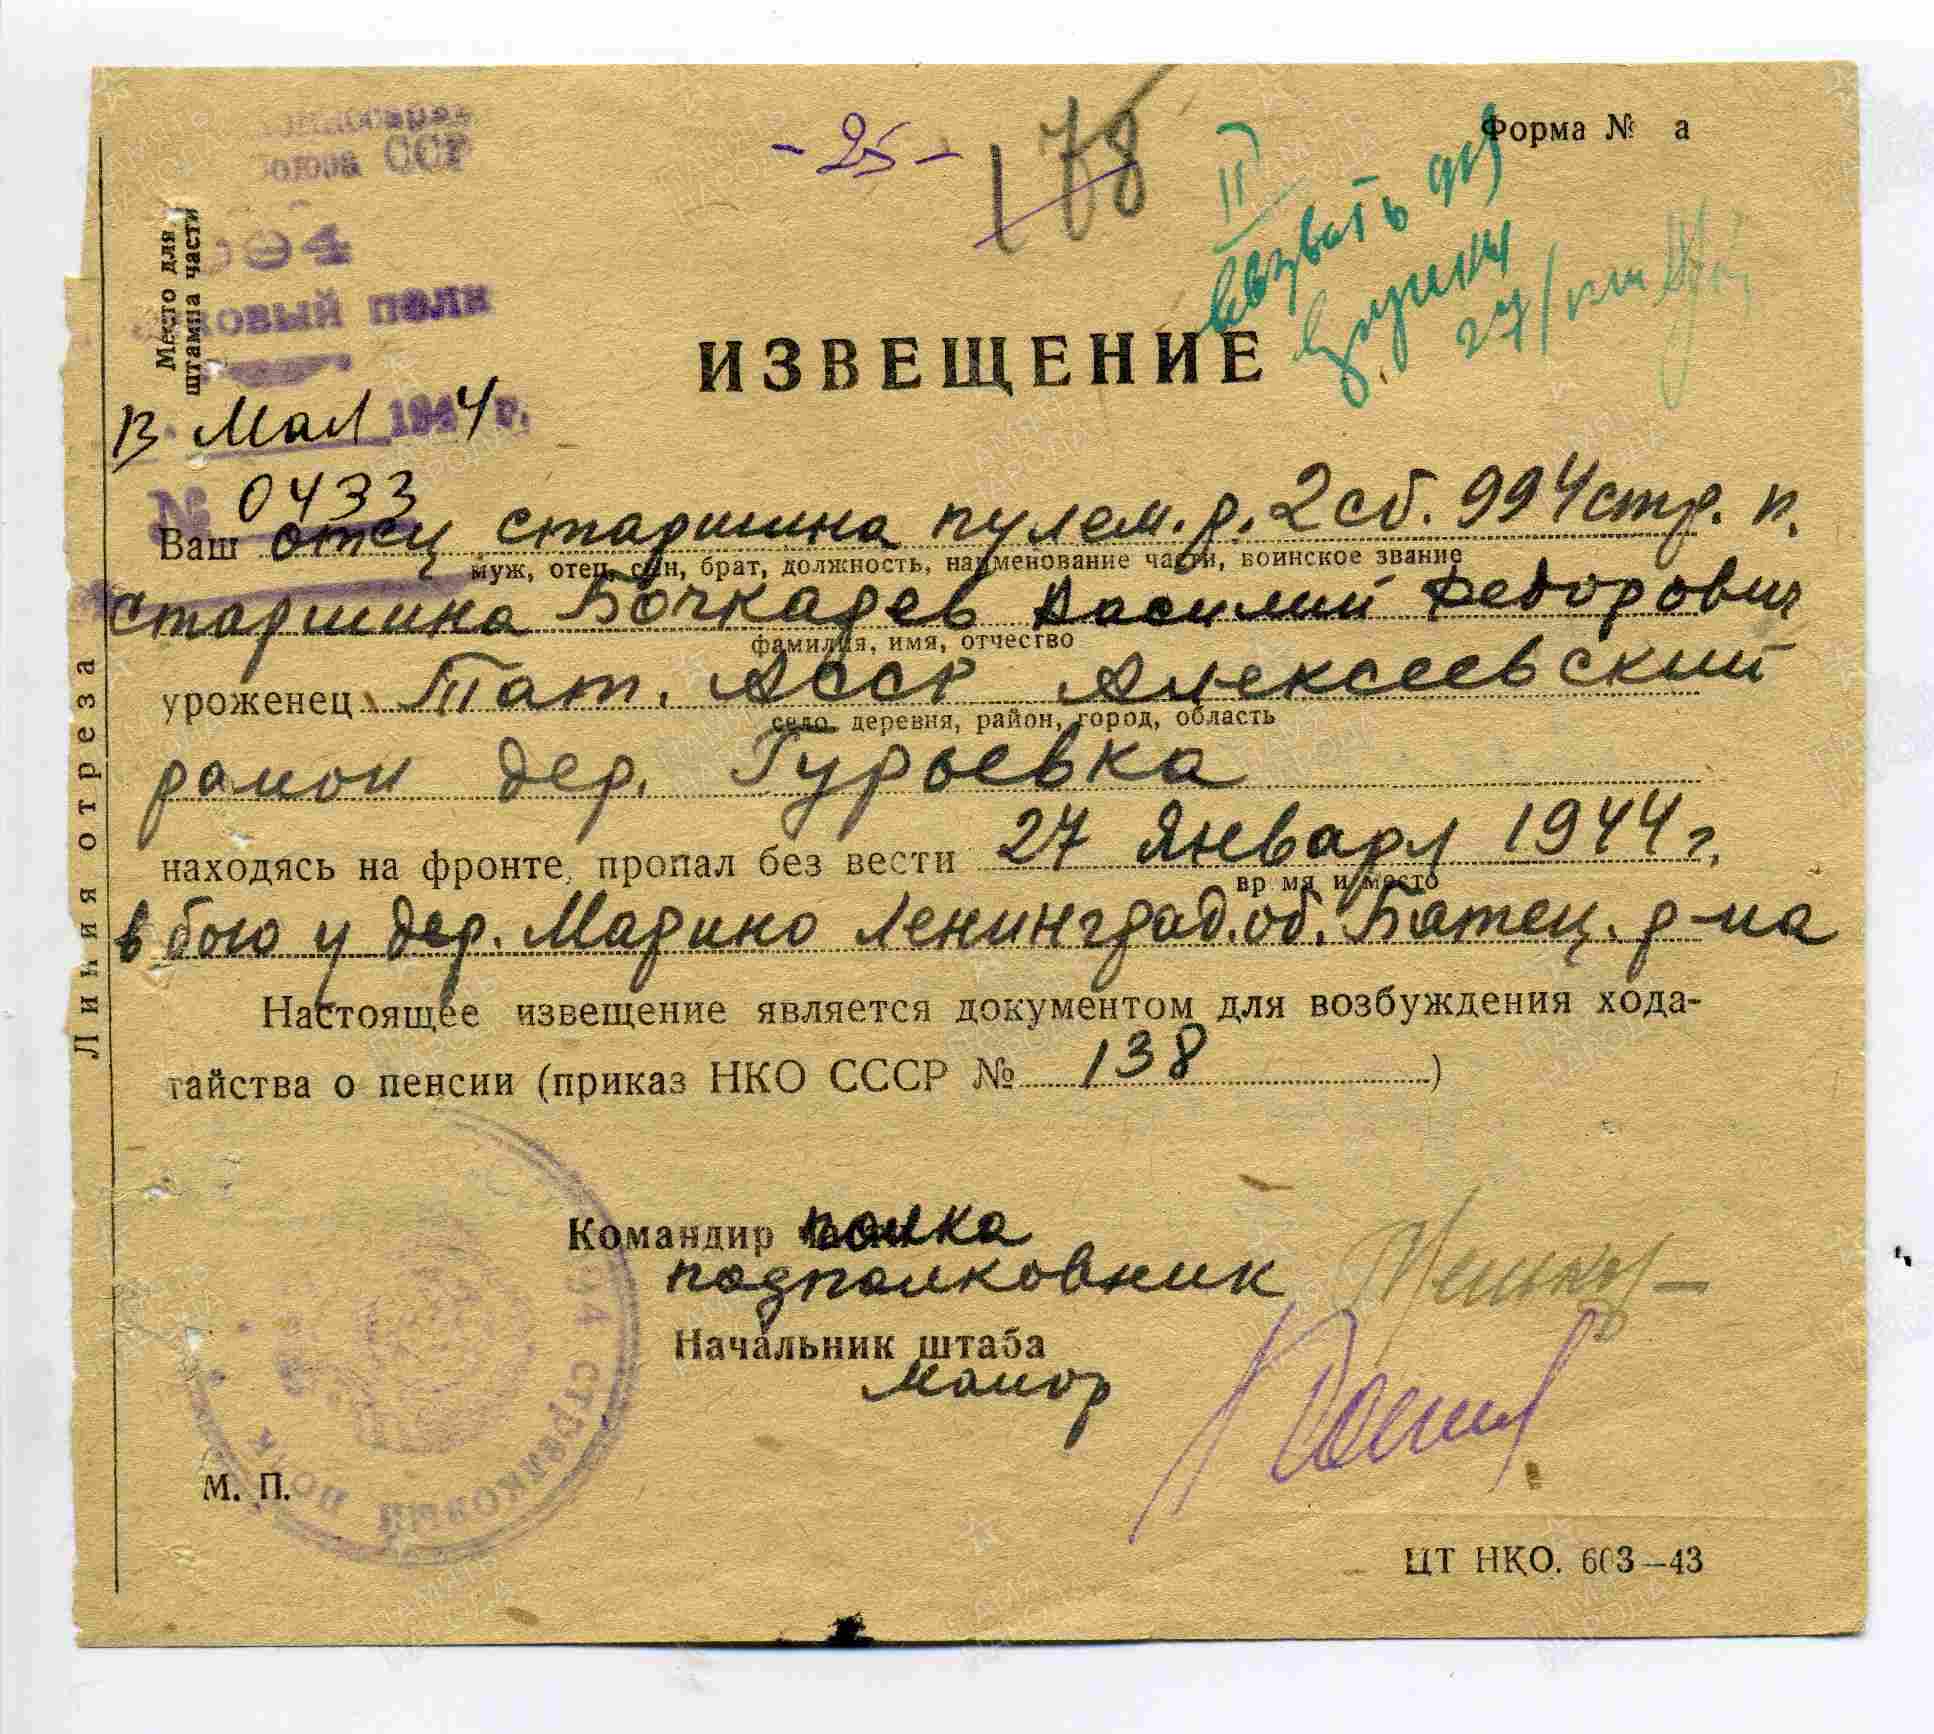 Союза ССР
- 25 -
178
Форма № а
II
вызвать для
994
Место для
штампа части
ковый полк
ИЗВЕЩЕНИЕ
13 Мая 1944 г.
№ 0433
Ваш отец старшина пулем. р. 2 сб. 994 стр. п.
муж, отец, сын, брат, должность, наименование части, воинское звание
старшина Бочкарев Василий Федорович
фамилия, имя, отчество
уроженец Тат. АССР Алексеевский
село, деревня, район, город, область
район дер. Гурьевка
находясь на фронте, пропал без вести 27 Января 1944 г.
вр мя и место
в бою у дер. Марино Ленинград. об. Батец. р-на
Настоящее извещение является документом для возбуждения хода-
тайства о пенсии (приказ НКО СССР № 138 )
Линия отреза
Командир полка
подполковник
Начальник штаба
майор
М. П.
994 СТРЕЛКОВЫЙ ПОЛК
ЦТ НКО. 603—43